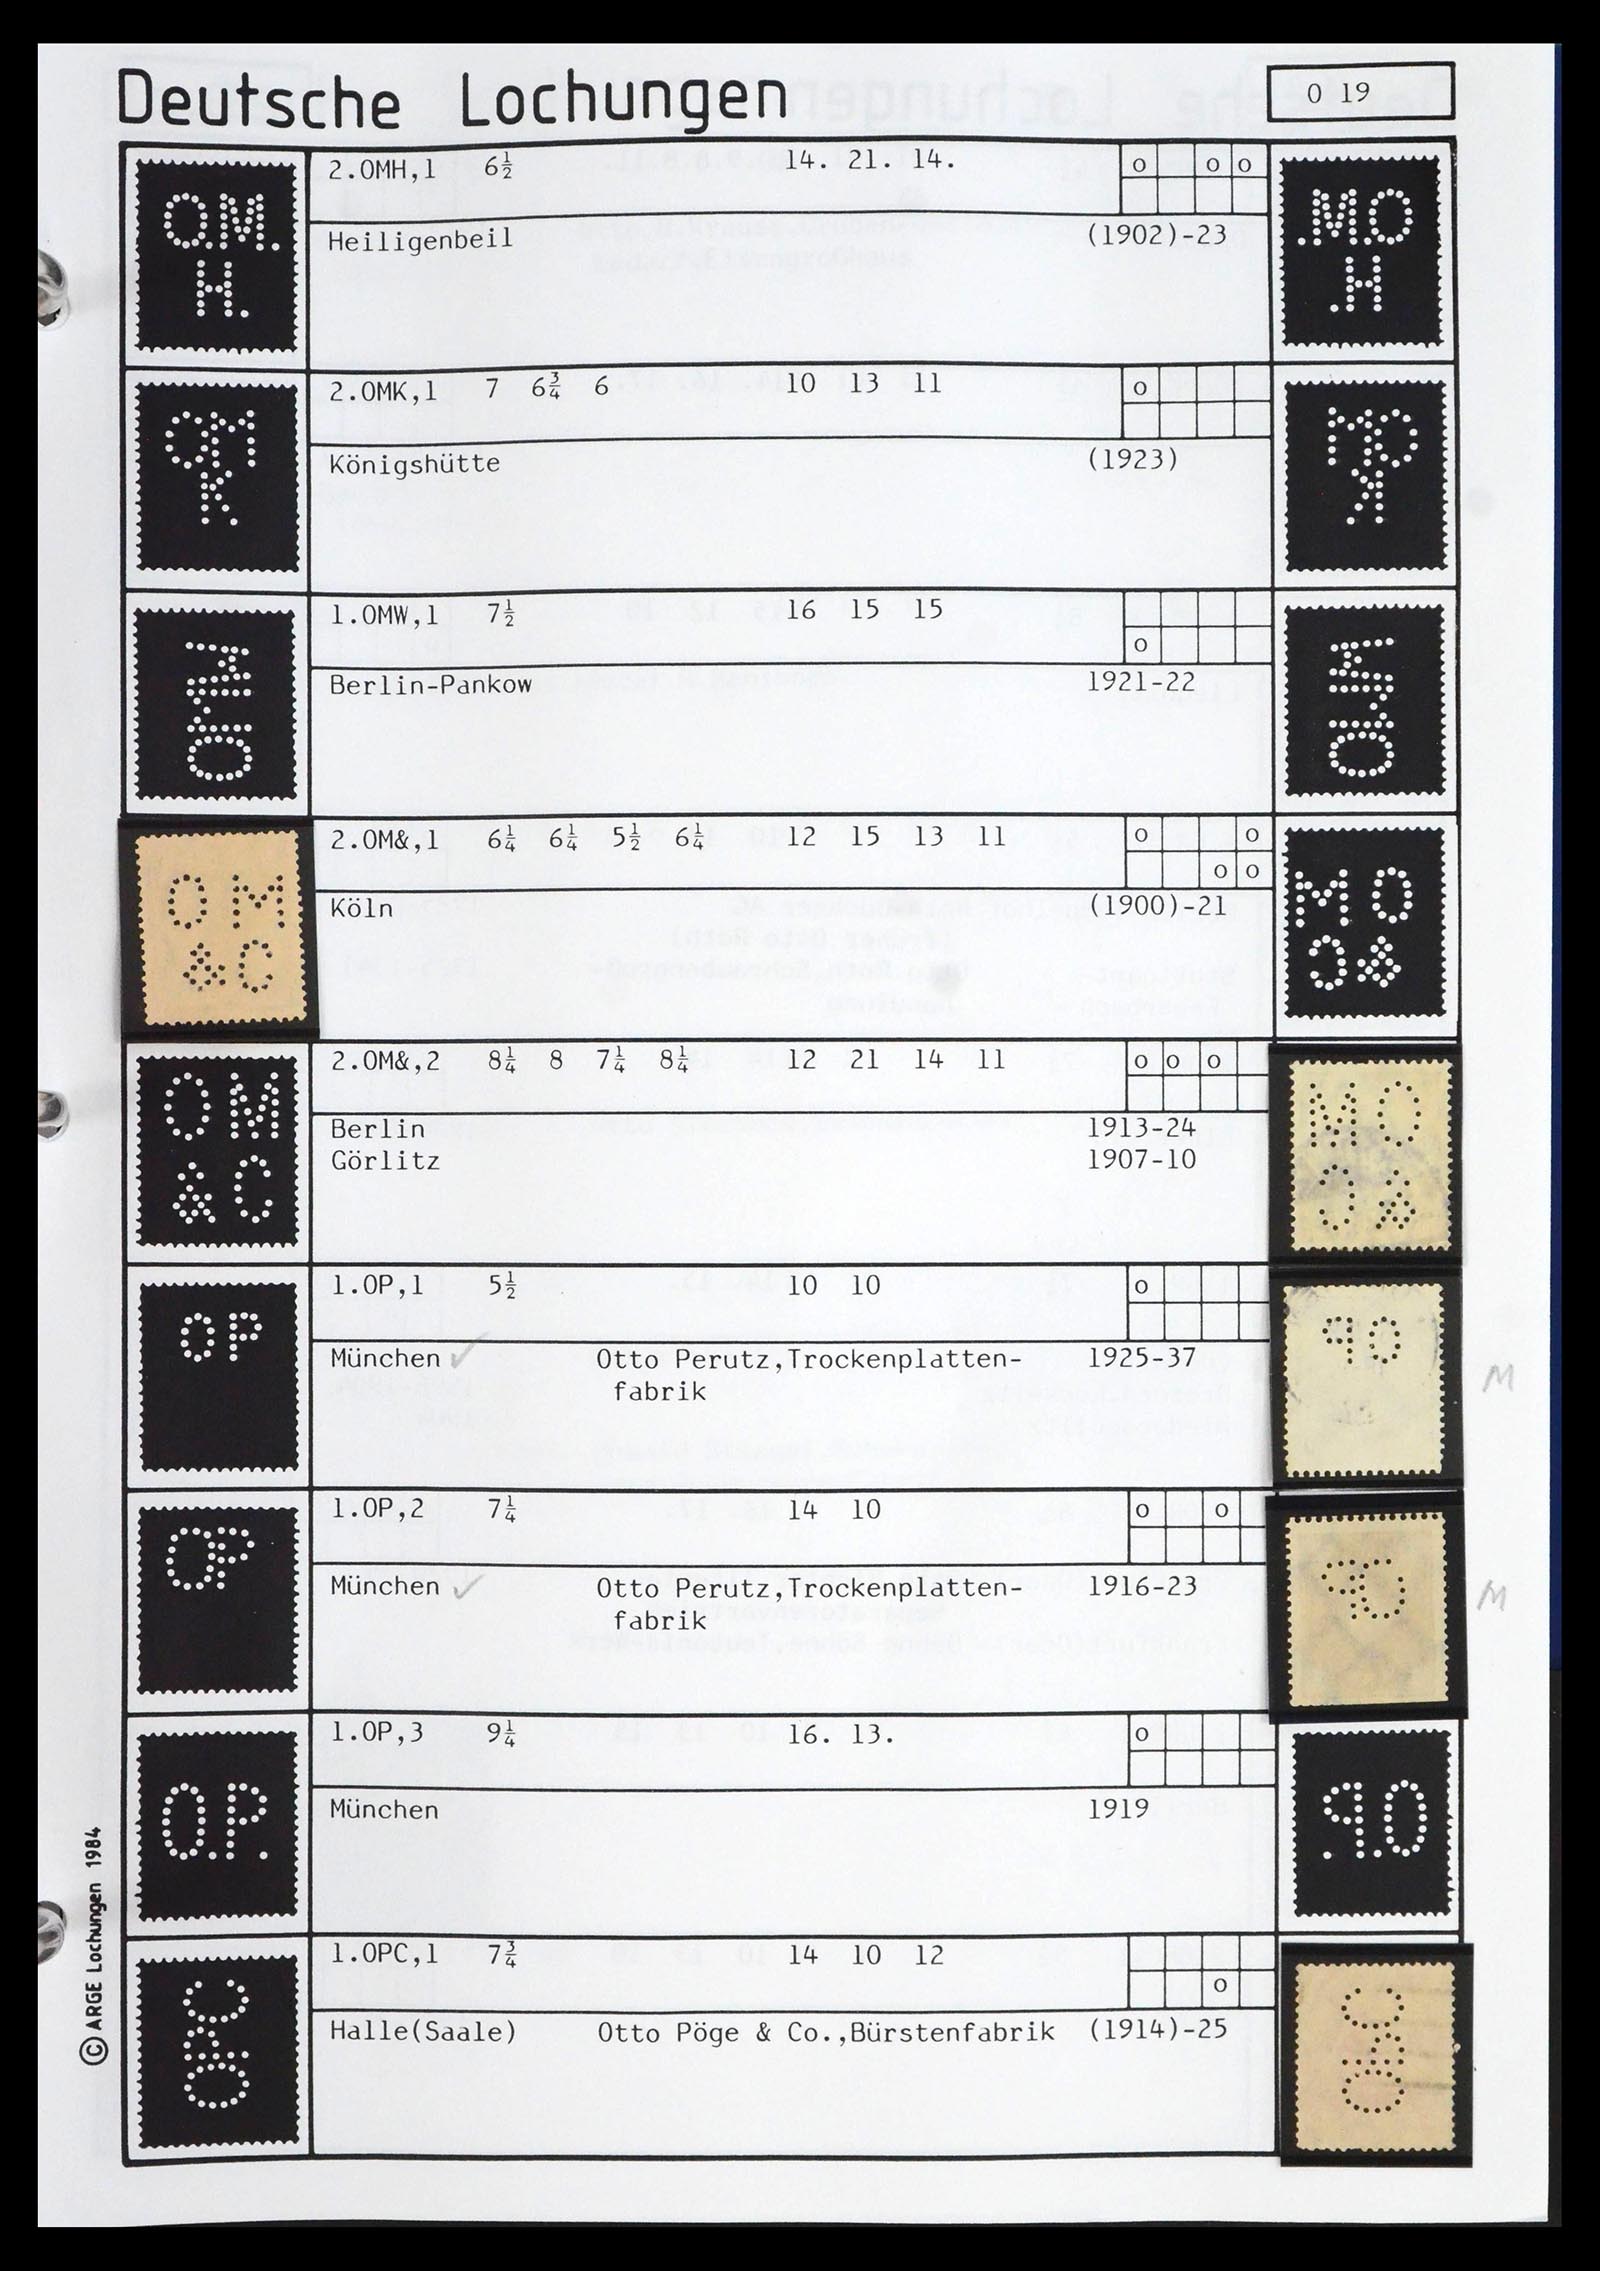 Deutsche Lochungen
O 19
O.M.
H.
2.OMH,1 6½ 14. 21. 14. o o o
Heiligenbeil (1902)-23
OM
K
2.OMK,1 7 6¾ 6 10 13 11 o
Königshütte (1923)
OMW
1.OMW,1 7½ 16 15 15
o
Berlin-Pankow 1921-22
OM
&C
2.OM&,1 6¼ 6¼ 5½ 6¼ 12 15 13 11 o o
o o
Köln (1900)-21
OM
&C
2.OM&,2 8¼ 8 7¼ 8¼ 12 21 14 11 o o o
Berlin 1913-24
Görlitz 1907-10
OP
1.OP,1 5½ 10 10 o
München ✓ Otto Perutz,Trockenplatten- 1925-37 M
fabrik
OP
1.OP,2 7¼ 14 10 o o
München ✓ Otto Perutz,Trockenplatten- 1916-23 M
fabrik
O.P.
1.OP,3 9¼ 16. 13. o
München 1919
OPC
1.OPC,1 7¾ 14 10 12
o
Halle(Saale) Otto Pöge & Co.,Bürstenfabrik (1914)-25
© ARGE Lochungen 1984